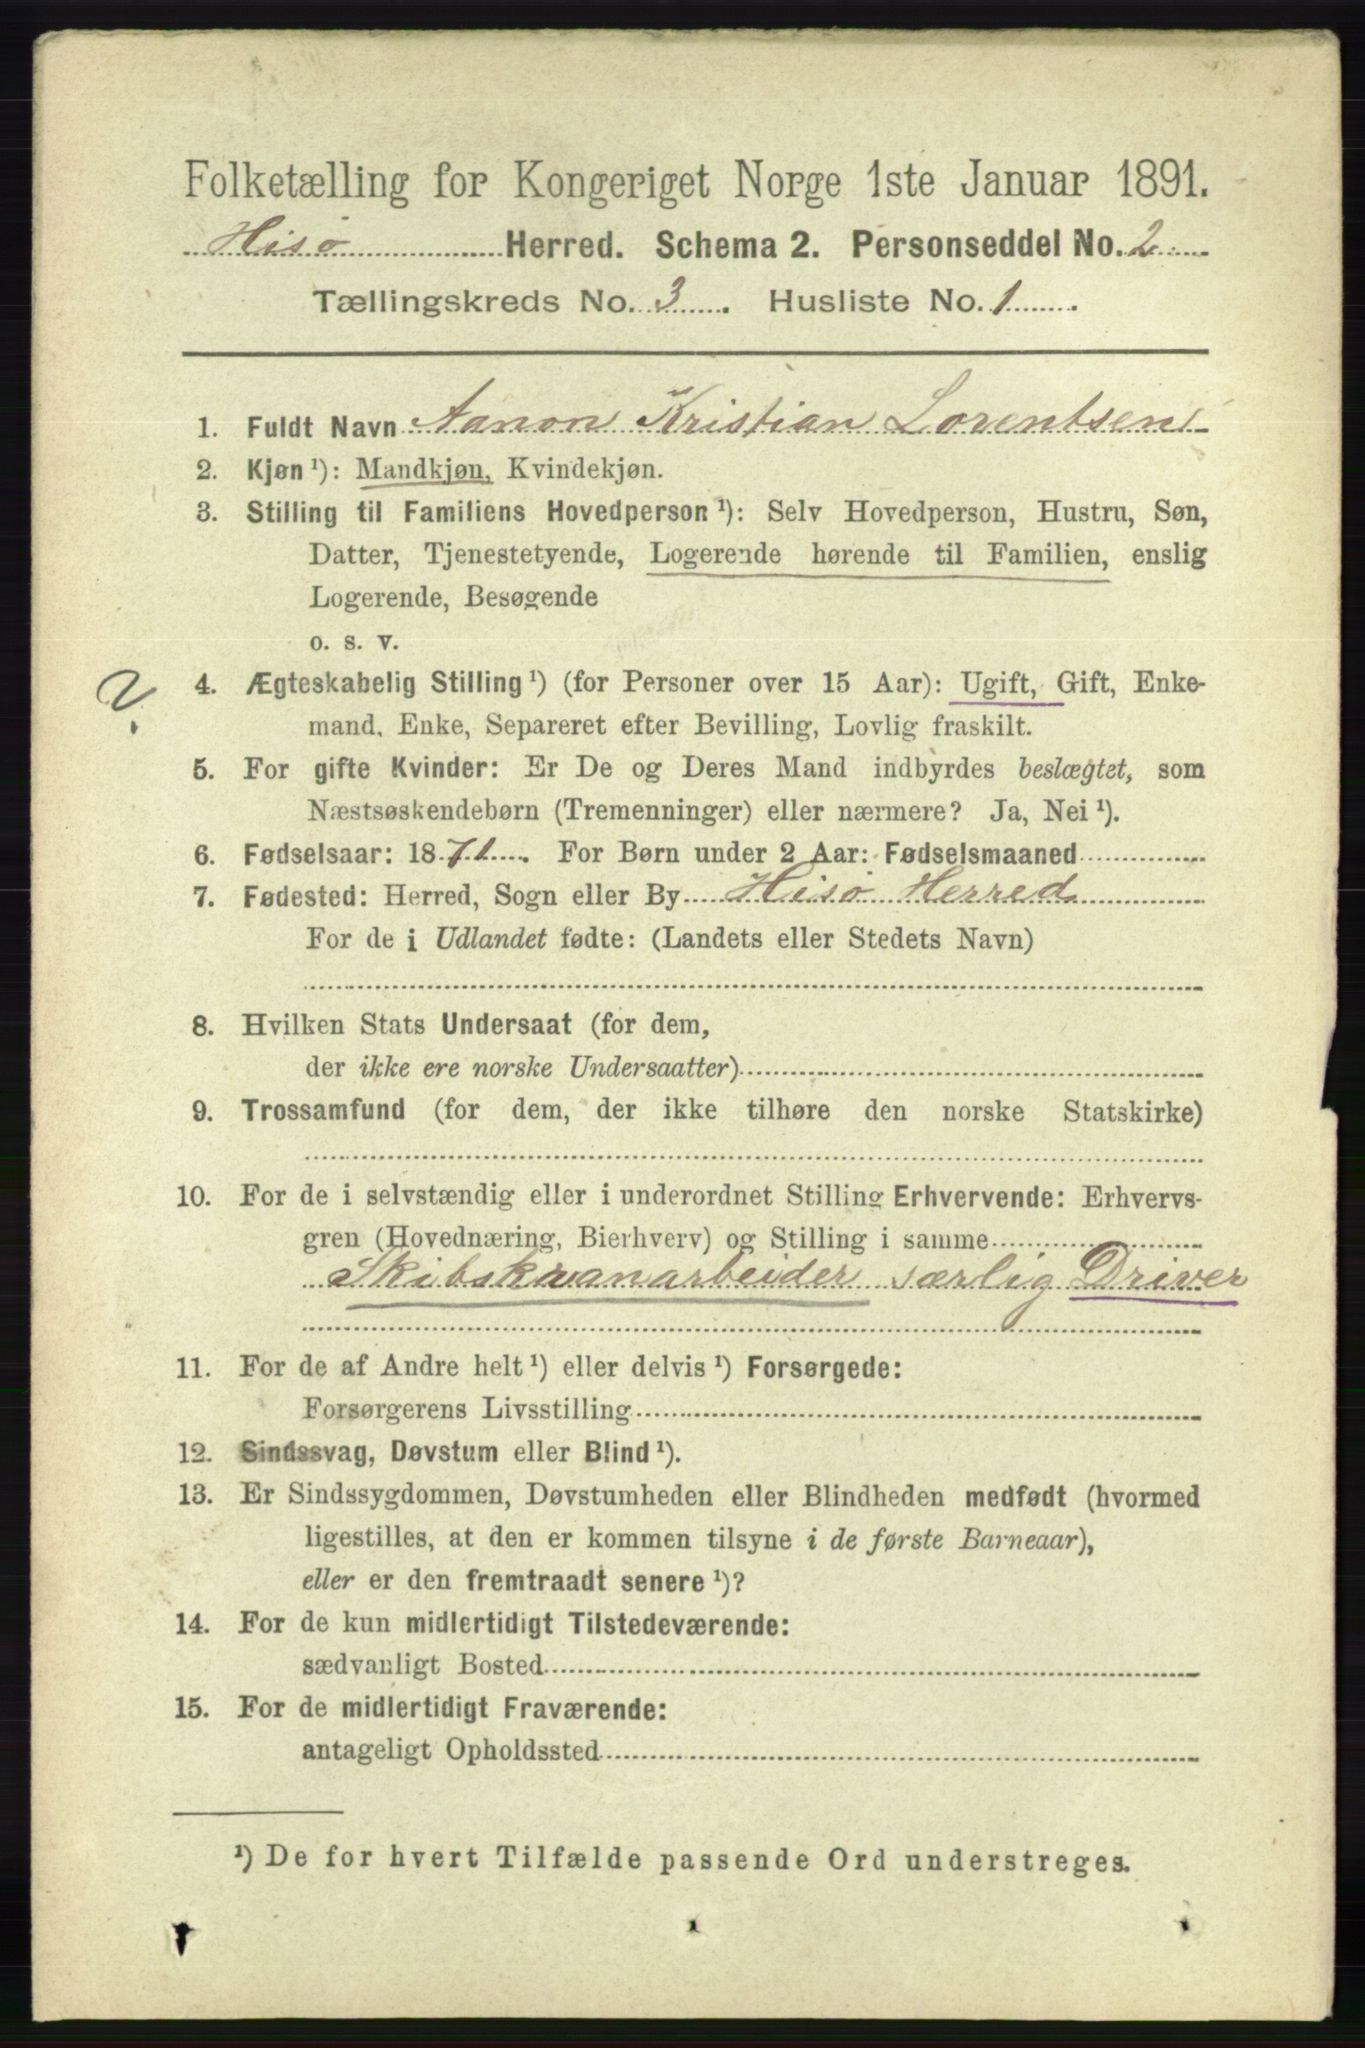 Folketælling for Kongeriget Norge 1ste Januar 1891.
Hisø Herred. Schema 2. Personseddel No. 2
Tællingskreds No. 3. Husliste No. 1.
1. Fuldt Navn Aanon Kristian Lorentsen
2. Kjøn ¹): Mandkjøn, Kvindekjøn.
3. Stilling til Familiens Hovedperson ¹): Selv Hovedperson, Hustru, Søn,
Datter, Tjenestetyende, Logerende hørende til Familien, enslig
Logerende, Besøgende
o. s. v.
4. Ægteskabelig Stilling ¹) (for Personer over 15 Aar): Ugift, Gift, Enke-
mand, Enke, Separeret efter Bevilling, Lovlig fraskilt.
5. For gifte Kvinder: Er De og Deres Mand indbyrdes beslægtet, som
Næstsøskendebørn (Tremenninger) eller nærmere? Ja, Nei ¹).
6. Fødselsaar: 1871. For Børn under 2 Aar: Fødselsmaaned
7. Fødested: Herred, Sogn eller By Hisø Herred
For de i Udlandet fødte: (Landets eller Stedets Navn)
8. Hvilken Stats Undersaat (for dem,
der ikke ere norske Undersaatter)
9. Trossamfund (for dem, der ikke tilhøre den norske Statskirke)
10. For de i selvstændig eller i underordnet Stilling Erhvervende: Erhvervs-
gren (Hovednæring, Bierhverv) og Stilling i samme
særlig Driver
11. For de af Andre helt ¹) eller delvis ¹) Forsørgede:
Forsørgerens Livsstilling
12. Sindssvag, Døvstum eller Blind ¹).
13. Er Sindssygdommen, Døvstumheden eller Blindheden medfødt (hvormed
ligestilles, at den er kommen tilsyne i de første Barneaar),
eller er den fremtraadt senere ¹)?
14. For de kun midlertidigt Tilstedeværende:
sædvanligt Bosted
15. For de midlertidigt Fraværende:
antageligt Opholdssted
¹) De for hvert Tilfælde passende Ord understreges.